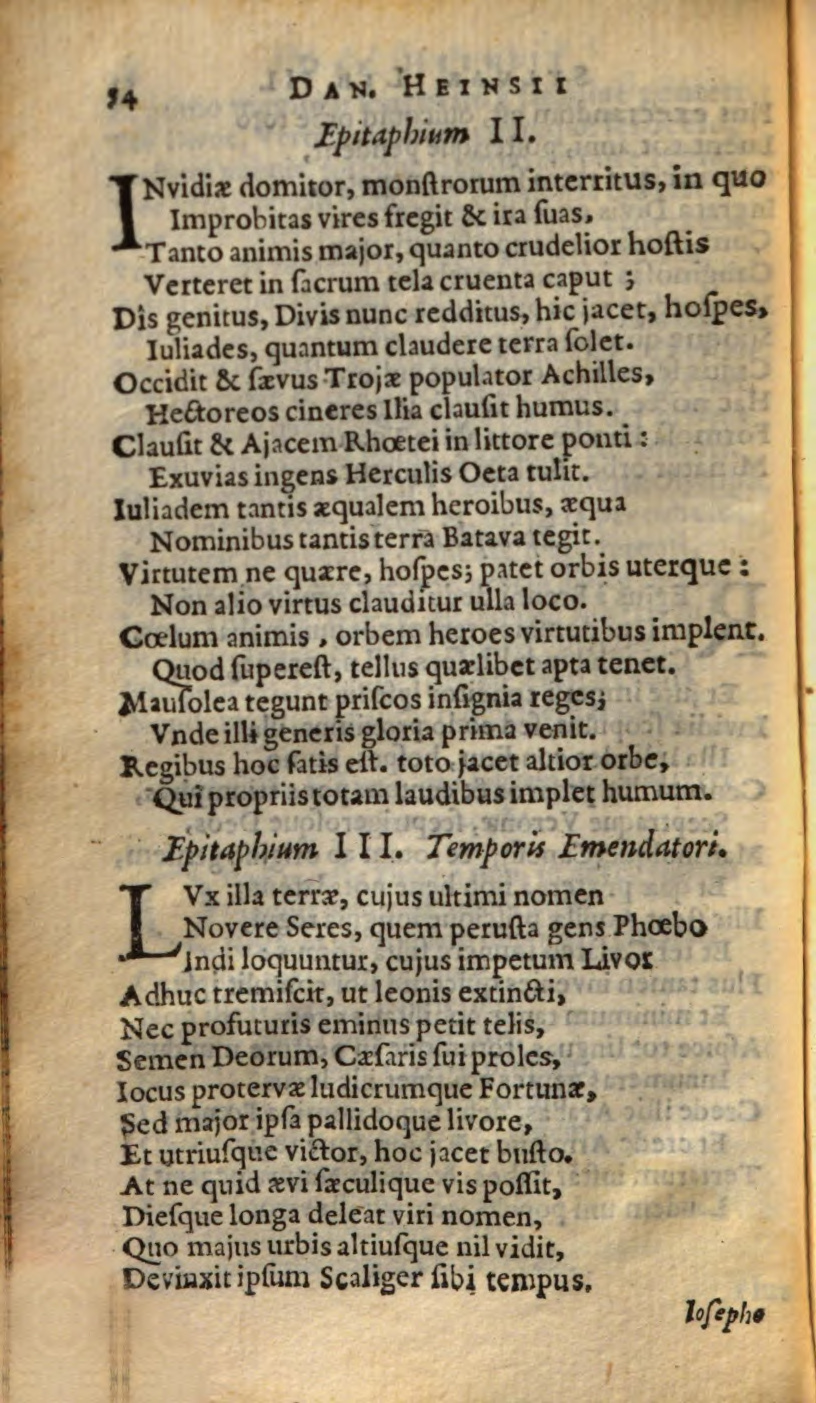 54 DAN. HEINSII
Epitaphium II.
INvidiæ domitor, monſtrorum interritus, in quo
Improbitas vires fregit & ira ſuas,
Tanto animis major, quanto crudelior hoſtis
Verteret in ſacrum tela cruenta caput ;
Dîs genitus, Divis nunc redditus, hic jacet, hoſpes,
Iuliades, quantum claudere terra ſolet.
Occidit & ſævus Trojæ populator Achilles,
Hectoreos cineres Ilia clauſit humus.
Clauſit & Ajacem Rhœtei in littore ponti :
Exuvias ingens Herculis Oeta tulit.
Iuliadem tantis æqualem heroibus, æqua
Nominibus tantis terra Batava tegit.
Virtutem ne quære, hoſpes; patet orbis uterque :
Non alio virtus clauditur ulla loco.
Cœlum animis , orbem heroes virtutibus implent.
Quod ſupereſt, tellus quælibet apta tenet.
Mauſolea tegunt priſcos inſignia reges;
Vnde illi generis gloria prima venit.
Regibus hoc ſatis eſt. toto jacet altior orbe,
Qui propriis totam laudibus implet humum.
Epitaphium III. Temporis Emendatori.
LVx illa terræ, cujus ultimi nomen
Novere Seres, quem peruſta gens Phœbo
Indi loquuntur, cujus impetum Livor
Adhuc tremiſcit, ut leonis extincti,
Nec profuturis eminus petit telis,
Semen Deorum, Cæſaris ſui proles,
Iocus protervæ ludicrumque Fortunæ,
Sed major ipſa pallidoque livore,
Et utriuſque victor, hoc jacet buſto.
At ne quid ævi ſæculique vis poſſit,
Dieſque longa deleat viri nomen,
Quo majus urbis altiuſque nil vidit,
Devinxit ipſum Scaliger ſibi tempus.
Ioſepho